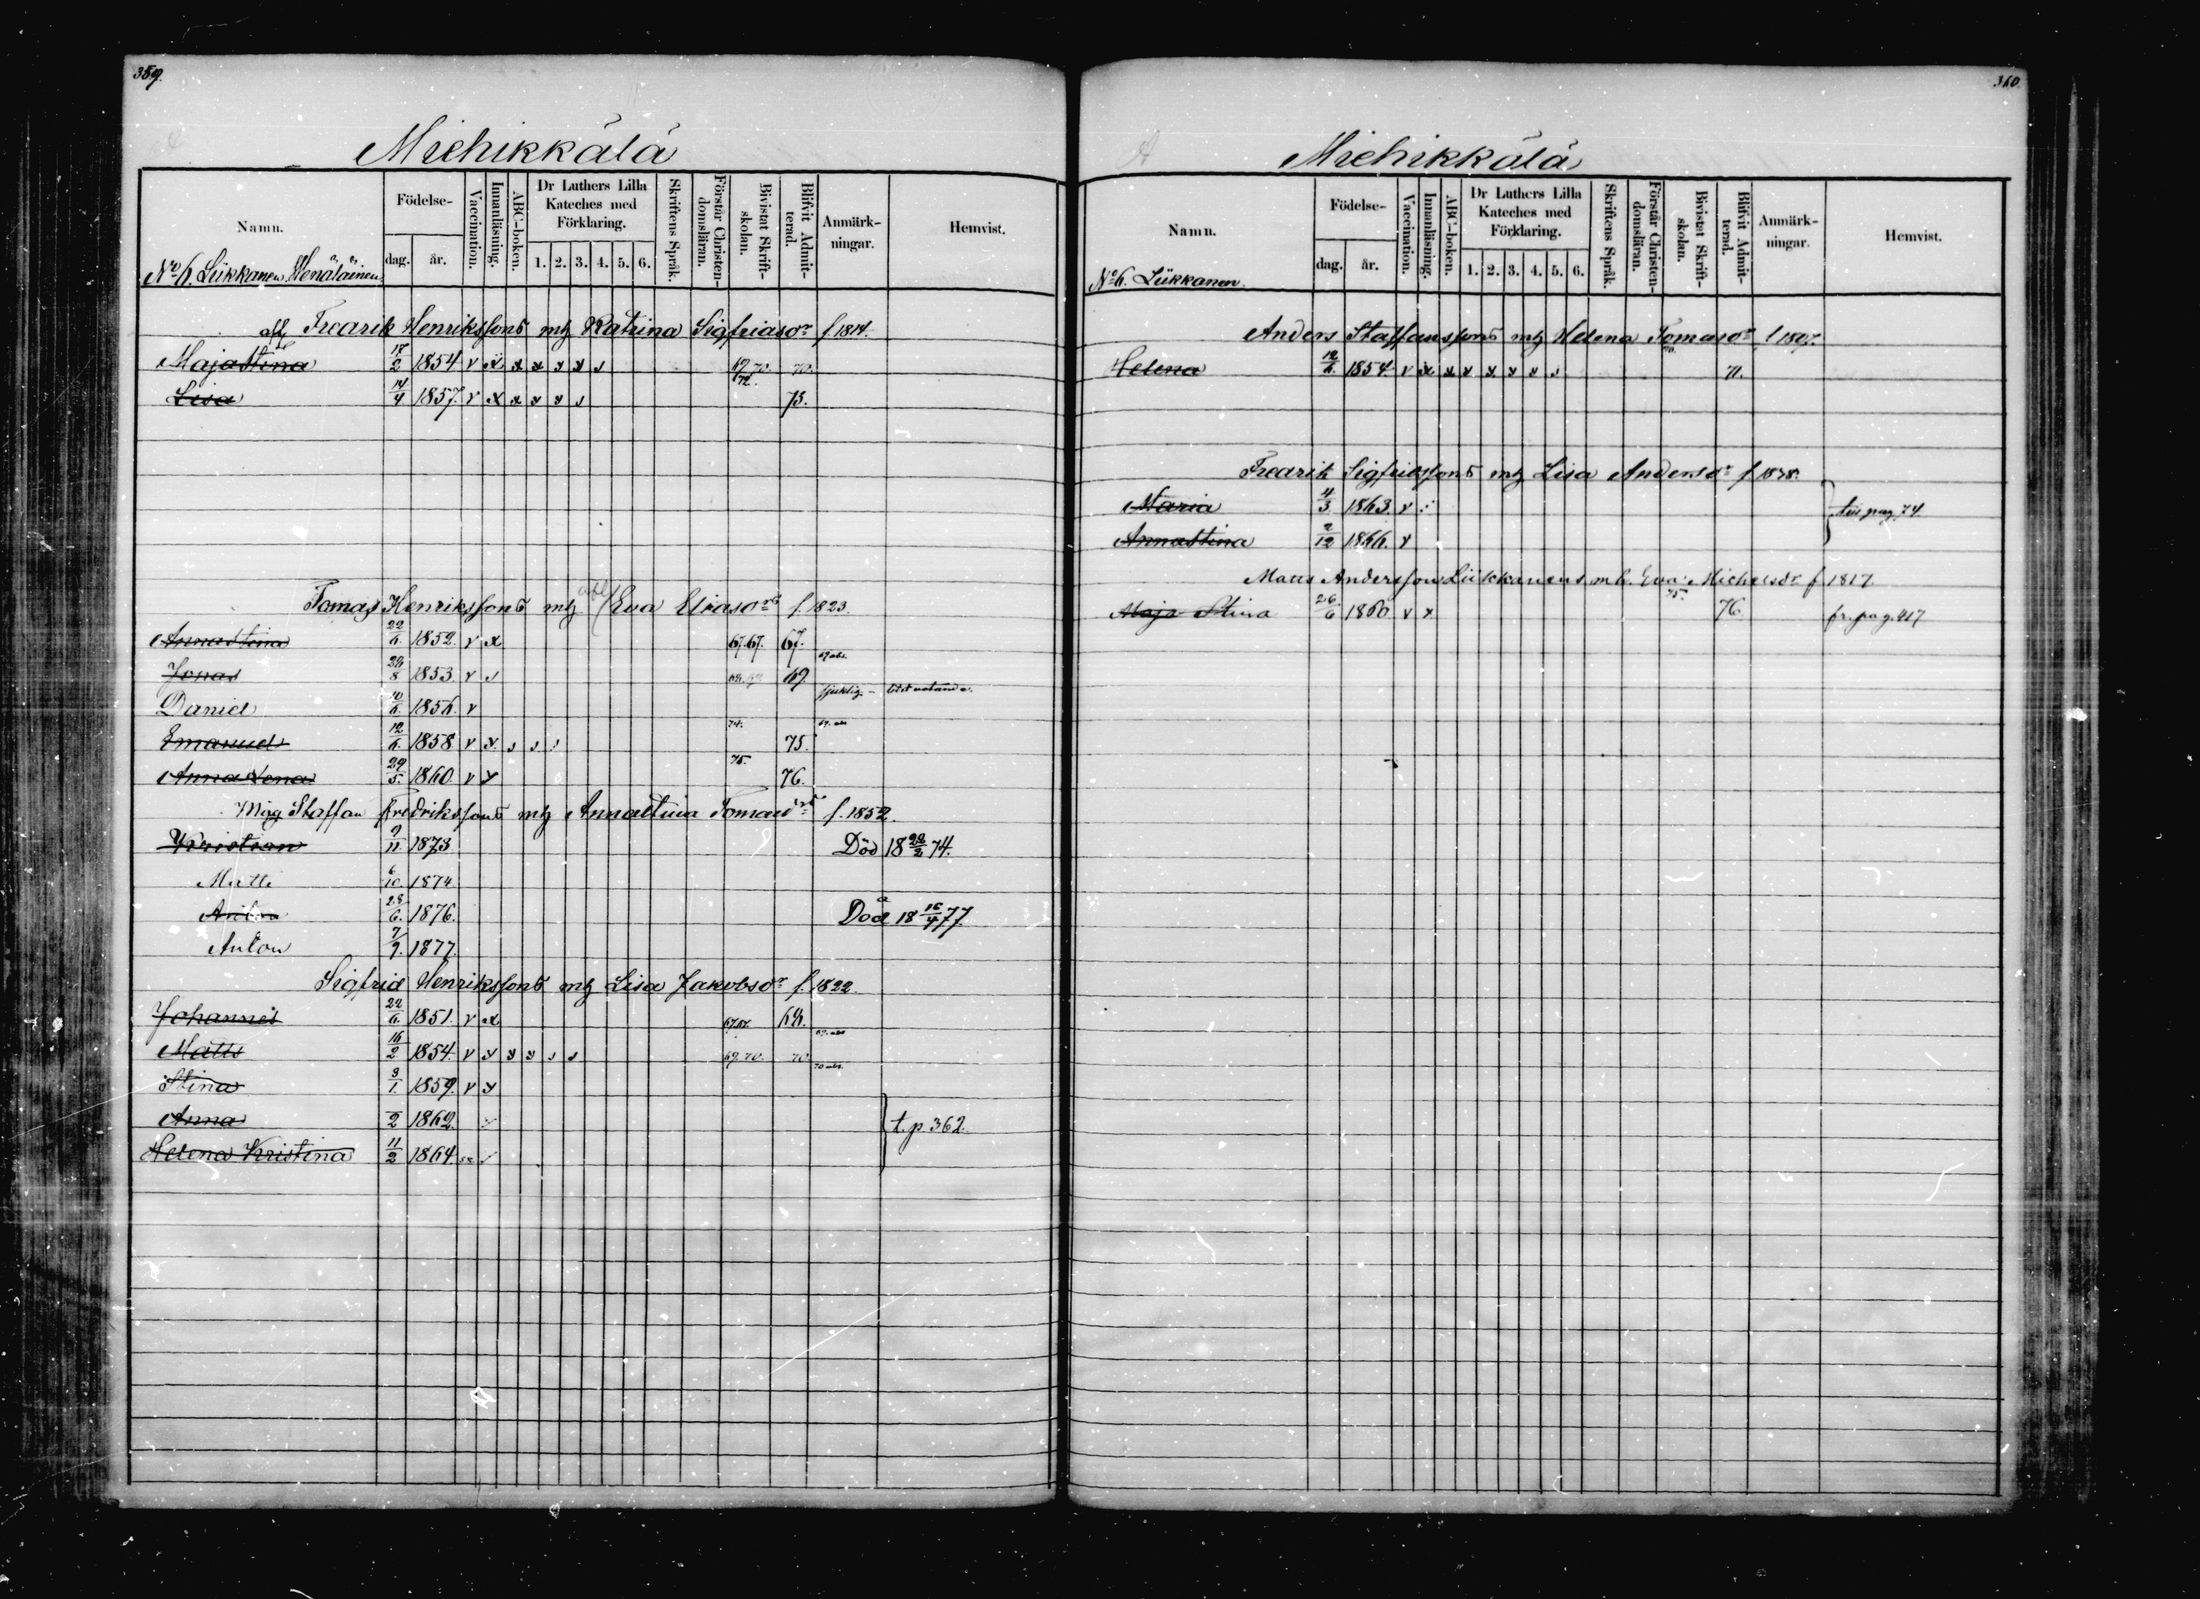 359.
Miehikkälä
Namn.
Födelse-
dag.
år.
Vaccination.
Innanläsning.
ABC-boken.
Dr Luthers Lilla
Kateches med
Förklaring.
1. 2. 3. 4. 5. 6.
Skriftens Språk.
Förstår Christen-
domsläran.
Bivistat Skrift-
skolan.
Blifvit Admit-
terad.
Anmärk-
ningar.
Hemvist.
No 6. Liikkanen, Venäläinen
afl Fredrik Henrikssons mh Katrina Sigfridsdr f. 1814.
Majastina 17/2 1854 v x x x x x 69 70. 70.
Lisa 14/4 1857. v x x x 72. 73.
Tomas Henrikssons mh afl (Eva Eliasdr f. 1823.
Annastina 22/6. 1852. v x 67.67. 67.
69 abs.
Jonas 1853. v 69
sjuklig.
Daniel 10/6. 1856. v
69. abs
Emanuel 12/6. 1858 v x 74. 75.
Anna Lena 29/5. 1860. v x 75. 76.
Måg Staffan Fredrikssons mh Annastina Tomasdr f. 1852.
Kristian 9/11 1873. Död 18 22/2 74.
Matti 6/10. 1874
Anton 28/6. 1876. Död 18 16/4 77.
Anton 7/9. 1877.
Sigfrid Henrikssons mh Lisa Jakobsdr f. 1822.
Johannes 22/6. 1851. v x 67.67. 68.
69. abs
Matts 16/2 1854. v x x x 69. 70. 70.
70 abs.
Stina 3/1. 1859. v x
Anna 2 1862.
t. p 362.
Helena Kristina 11/2 1864.
360.
Miehikkälä
Namn.
Födelse-
dag.
år.
Vaccination.
Innanläsning.
ABC-boken.
Dr Luthers Lilla
Kateches med
Förklaring.
1. 2. 3. 4. 5. 6.
Skriftens Språk.
Förstår Christen-
domsläran.
Bivistat Skrift-
skolan.
Blifvit Admit-
terad.
Anmärk-
ningar.
Hemvist.
No 6. Liikkanen.
Anders Staffanssons mh Helena Tomasdr f. 1807.
Helena 12/6. 1854 v x x x x x x 70. 71.
Fredrik Sigfridssons mh Lisa Andersdr f. 1838.
Maria 4/3. 1863. v
till pag. 74.
Annastina 2/12 1866. v
Matts Anderssons Liikkanens m h. Eva Michelsdr f 1817
Maja Stina 26/6 1860 v x 75. 76. fr. pag. 417